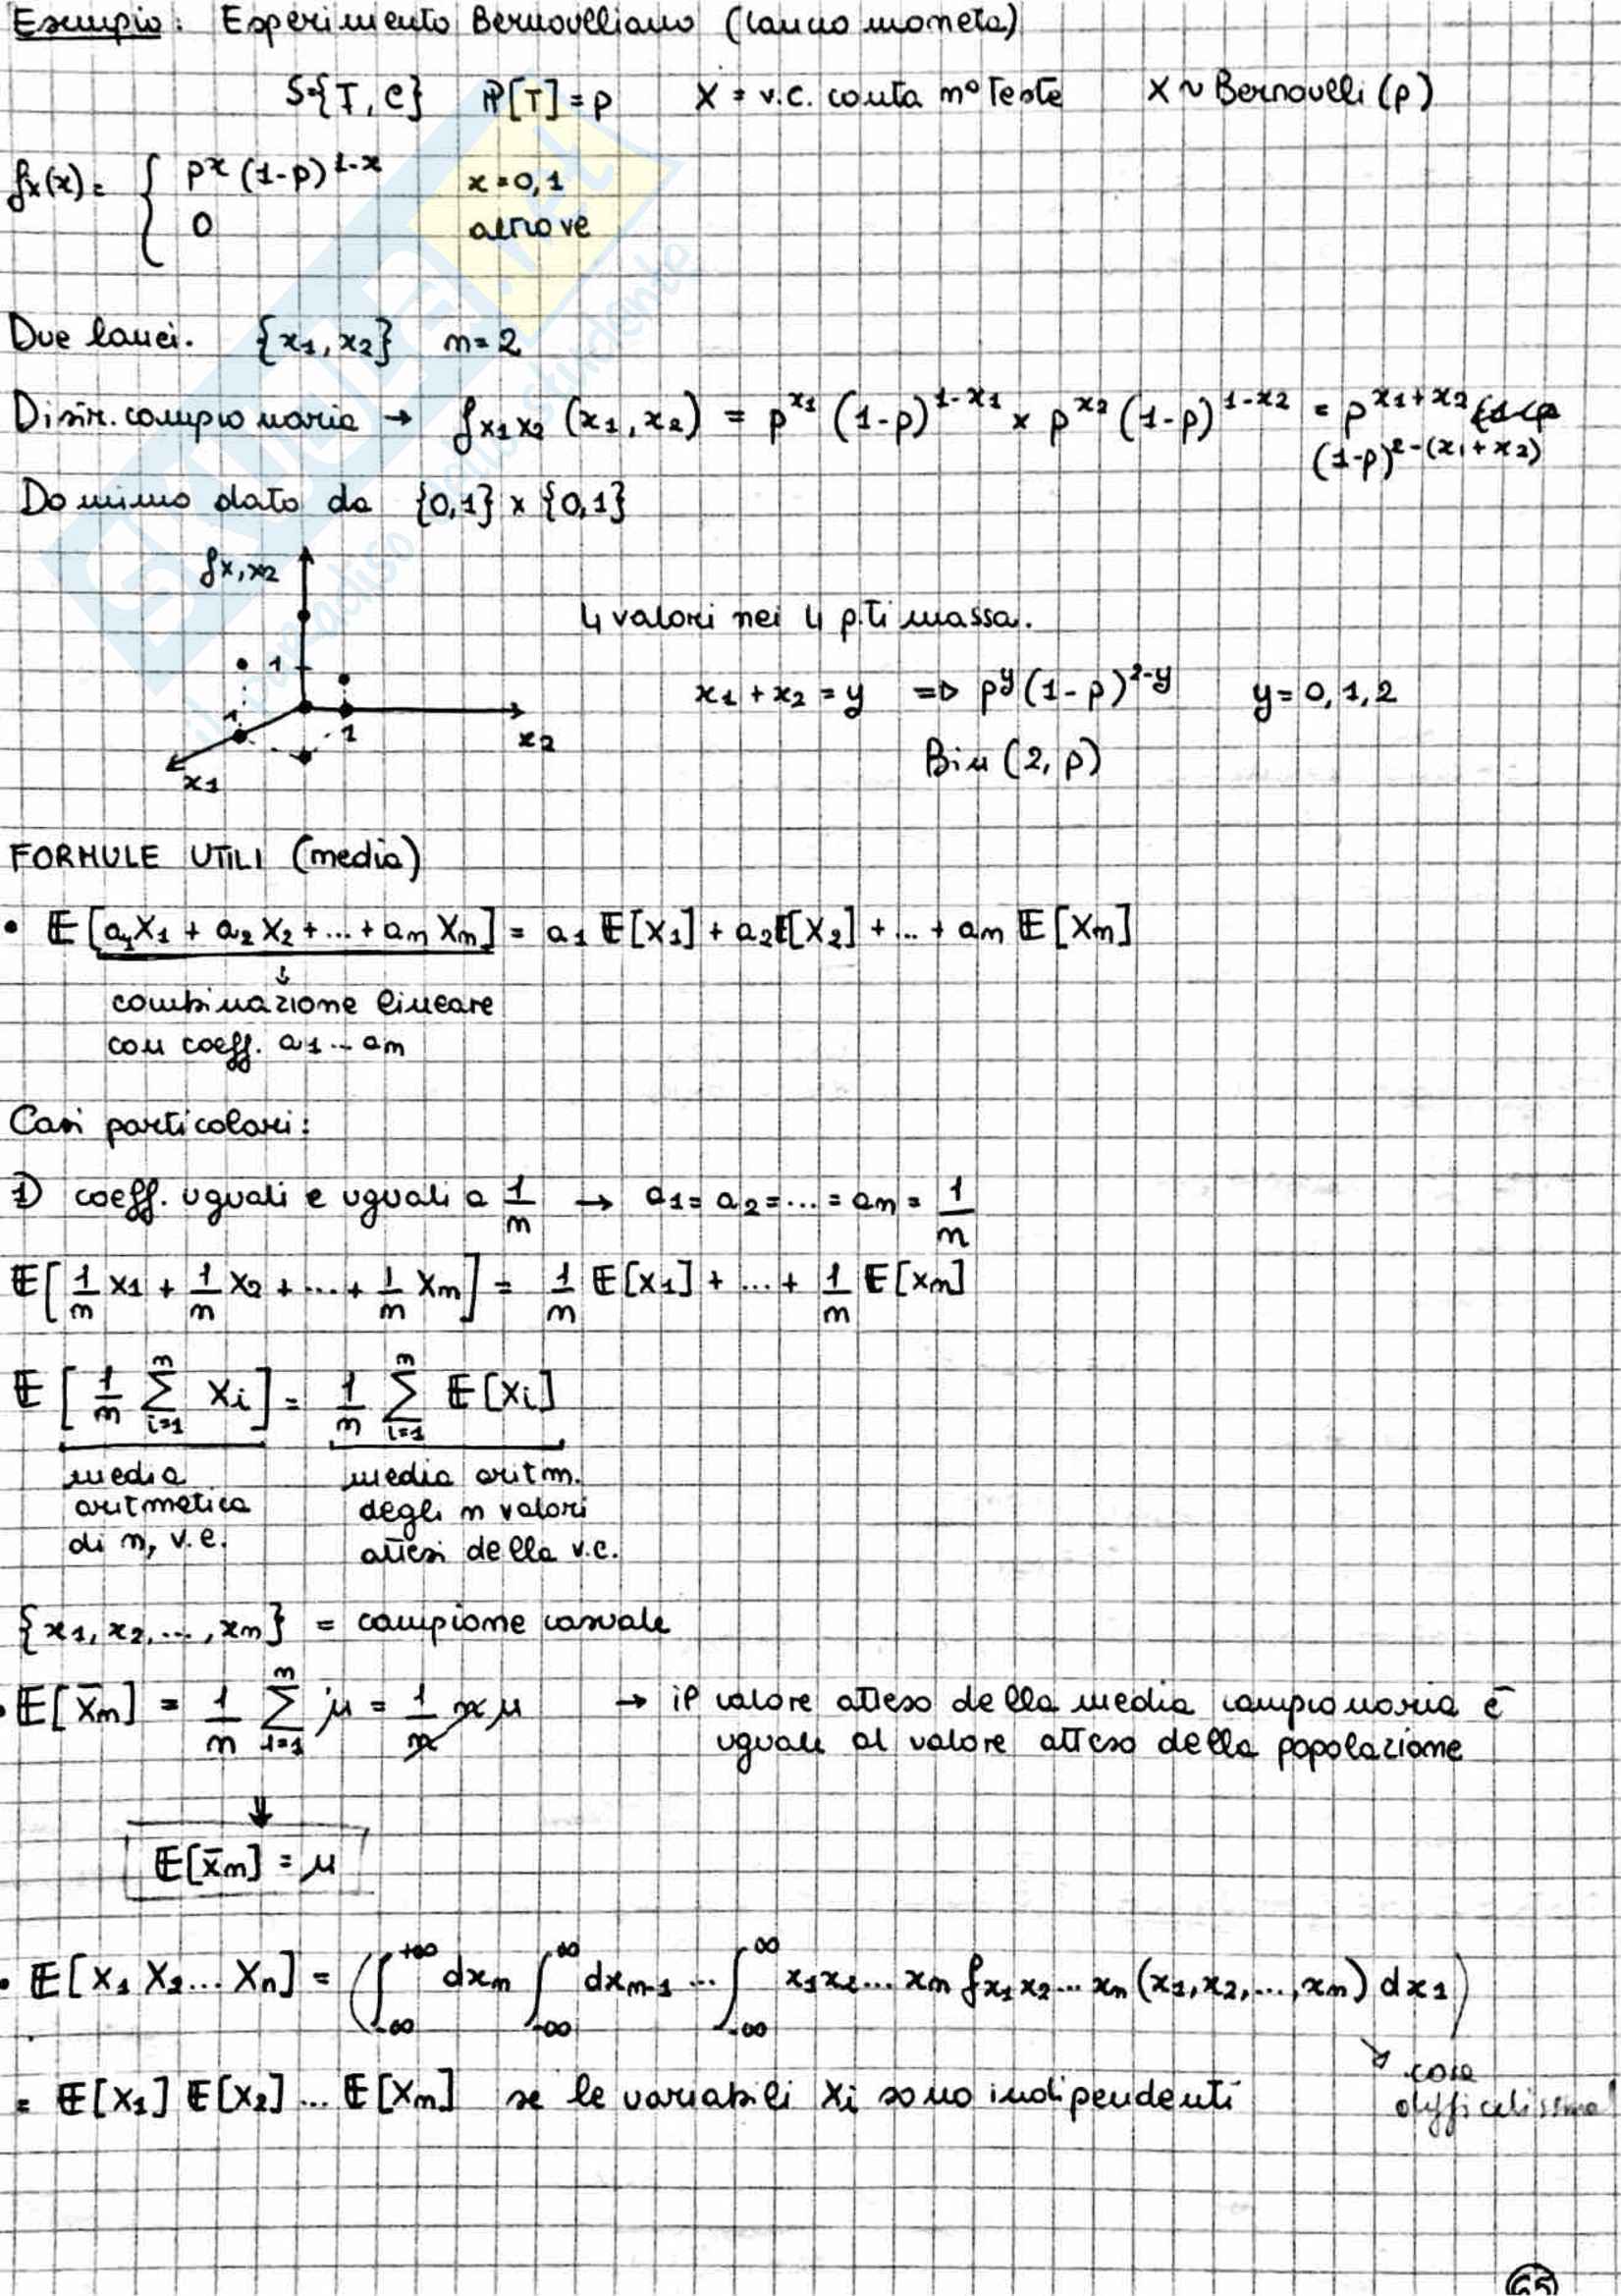 Esempio: Esperimento Bernoulliano (lancio moneta)
S={T, C} P[T] = p X = v.c. conta n° Teste X ~ Bernoulli (p)
fx(x) = { p^x (1-p)^{1-x} x = 0,1
0 altrove
Due lanci. {x1, x2} n = 2
Distr. campionaria → fx1x2 (x1, x2) = p^{x1} (1-p)^{1-x1} × p^{x2} (1-p)^{1-x2} = p^{x1+x2}
(1-p)^{2-(x1+x2)}
Dominio dato da {0,1} × {0,1}
fx1x2
4 valori nei 4 p.ti massa.
1
x1 + x2 = y => p^y (1-p)^{2-y} y = 0, 1, 2
1 1 x2
Bin (2, p)
x1
FORMULE UTILI (media)
• E [a1X1 + a2 X2 + ... + an Xn] = a1 E[X1] + a2E[X2] + ... + an E[Xn]
↓
combinazione lineare
con coeff. a1 ... an
Casi particolari:
1) coeff. uguali e uguali a 1/n → a1 = a2 = ... = an = 1/n
E[1/n X1 + 1/n X2 + ... + 1/n Xn] = 1/n E[X1] + ... + 1/n E[Xn]
E [1/n Σ_{i=1}^{n} Xi] = 1/n Σ_{i=1}^{n} E[Xi]
media media aritm.
aritmetica degli n valori
di n, v.c. attesi della v.c.
{x1, x2, ..., xn} = campione casuale
• E[X̄n] = 1/n Σ_{i=1}^{n} μ = 1/n n μ → il valore atteso della media campionaria è
uguale al valore atteso della popolazione
⇓
E[X̄n] = μ
• E[X1 X2 ... Xn] = (∫_{-∞}^{+∞} dxn ∫_{-∞}^{∞} dxn-1 ... ∫_{-∞}^{∞} x1x2 ... xn fx1x2 ... xn (x1, x2, ..., xn) dx1)
↘ cosa
= E[X1] E[X2] ... E[Xn] se le variabili Xi sono indipendenti
difficilissima!
65
SKUOLA.net
il paradiso dello studente